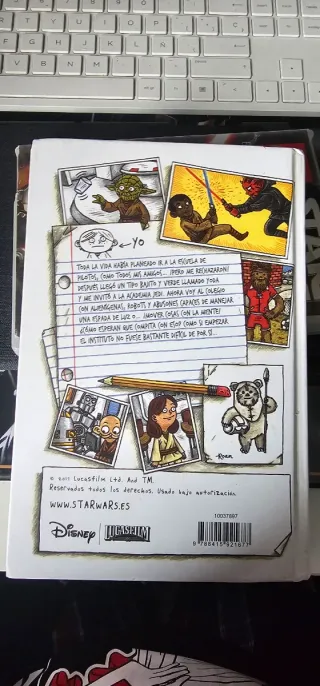 ← YO
TODA LA VIDA HABÍA PLANEADO IR A LA ESCUELA DE
PILOTOS, COMO TODOS MIS AMIGOS... ¡PERO ME RECHAZARON!
DESPUÉS LLEGÓ UN TIPO BAJITO Y VERDE LLAMADO YODA
Y ME INVITÓ A LA ACADEMIA JEDI. AHORA VOY AL COLEGIO
CON ALIENÍGENAS, ROBOTS Y ABUSONES CAPACES DE MANEJAR
UNA ESPADA DE LUZ O... ¡MOVER COSAS CON LA MENTE!
¿CÓMO ESPERAN QUE COMPITA CON ESO? COMO SI EMPEZAR
EL INSTITUTO NO FUESE BASTANTE DIFÍCIL DE POR SÍ...
-ROAN
Lucasfilm Ltd. And TM.
Reservados todos los derechos. Usado bajo autorización.
WWW.STARWARS.ES
Disney
LUCASFILM
10037887
9 788415 921677